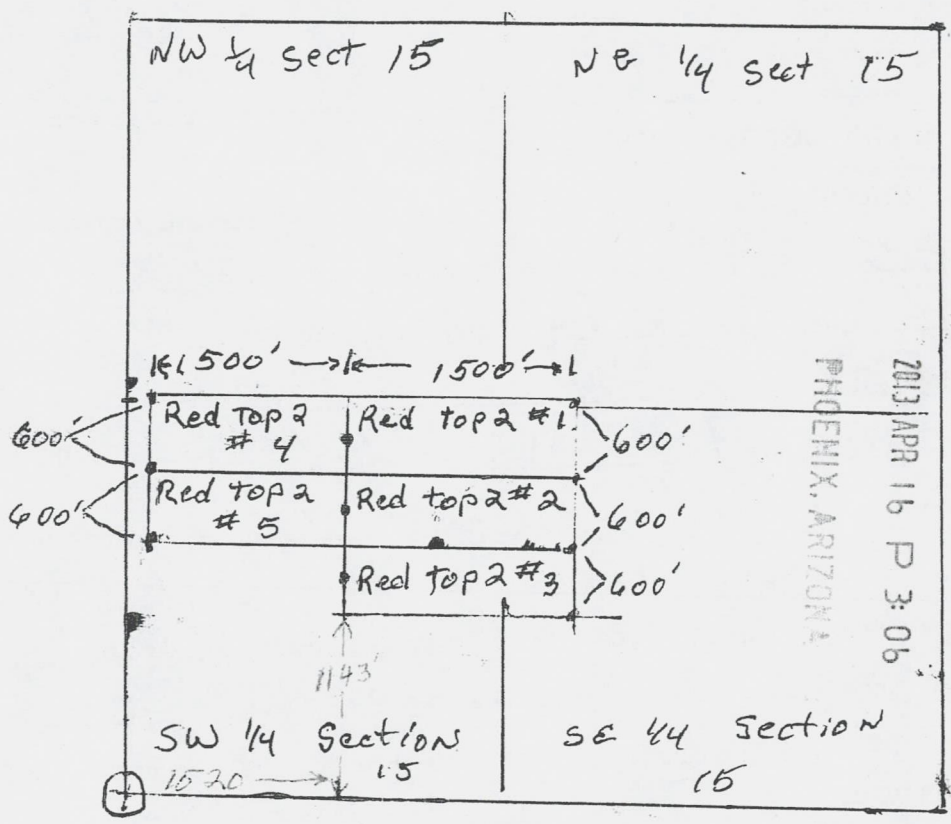 NW 1/4 Sect 15
NE 1/4 Sect 15
1500'
1500'
Red Top 2
# 4
Red top 2 #1
600'
600'
Red top 2
# 5
Red top 2 #2
600'
600'
Red top 2 #3
600'
1143'
SW 1/4 Section
15
SE 1/4 Section
15
1520
2013 APR 16 P 3:06
PHOENIX, ARIZONA